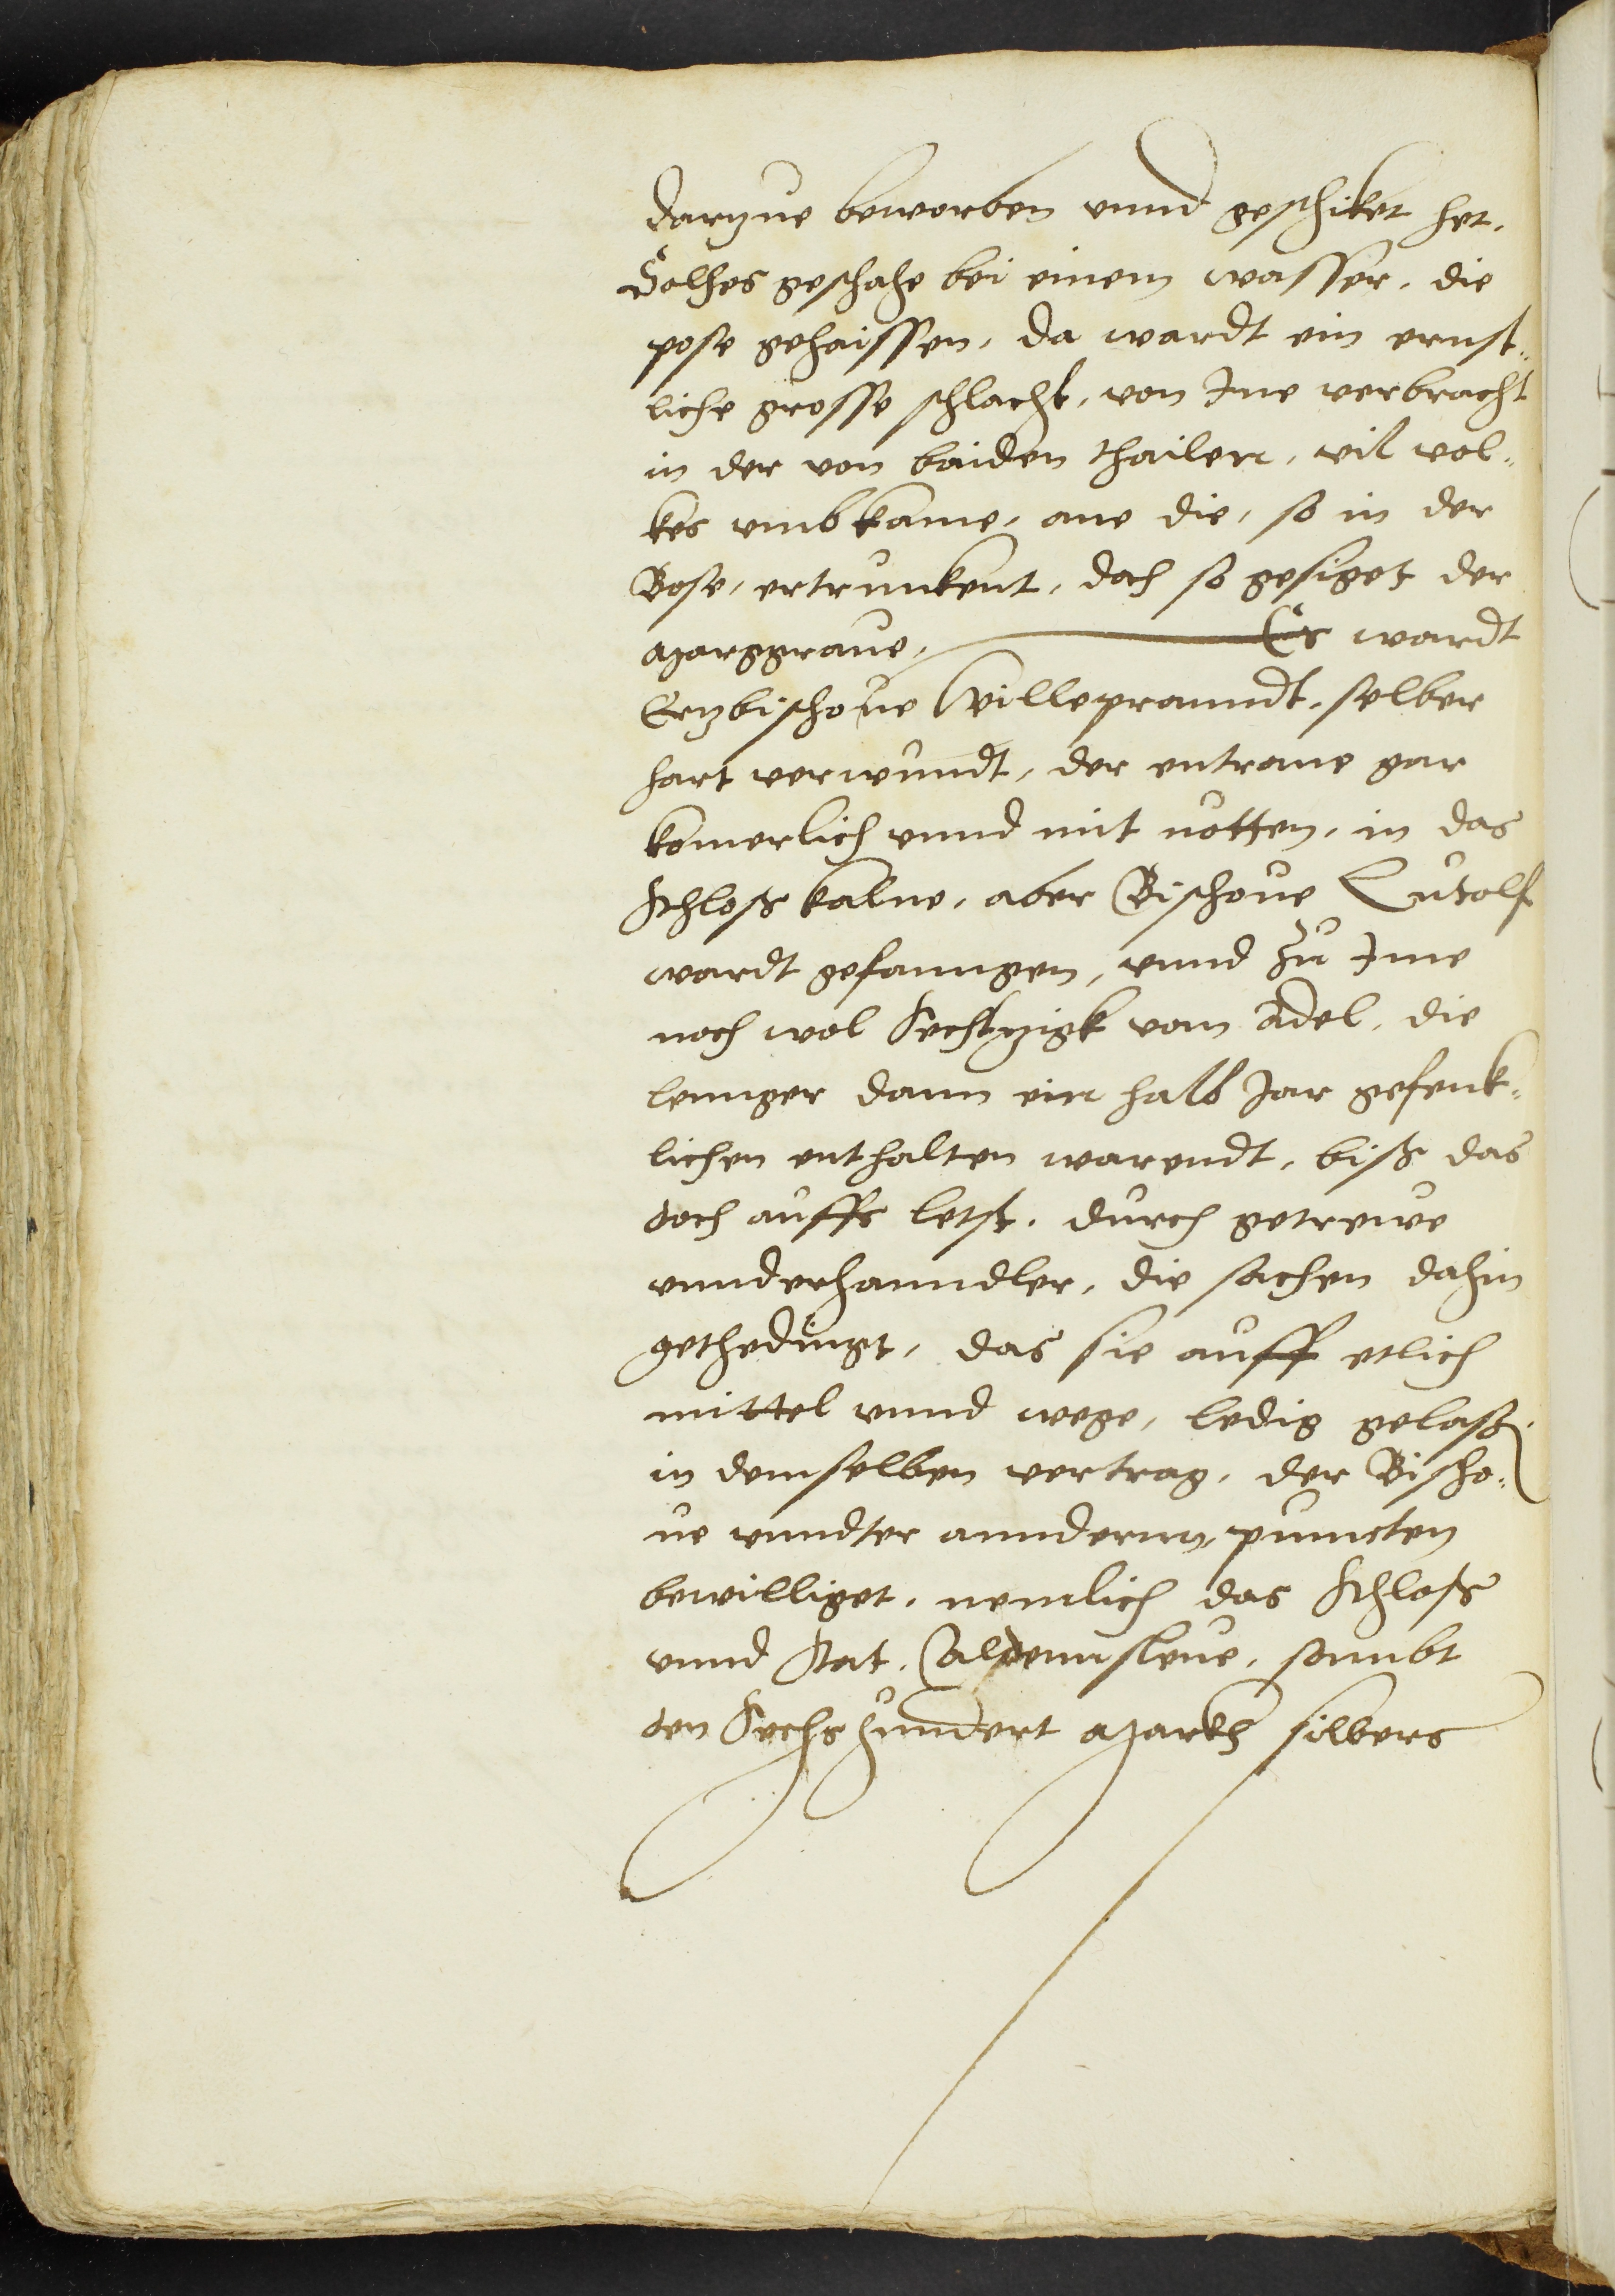 darzue beworben vnnd geschiket het.
Solhes geschahe bei einem wasser, die
pose gehaissen, da wardt ein ernst¬
liche grosse schlacht, von Ine verbracht
in der von baiden thailen, vil vol¬
kes vmbkame, ane die, so in der
Bose, ertrunkent, doch so gesiget der
Marggraue, Es wardt
Erzbischoue Willepranndt, selber
hart verwundt, der entrane gar
komerlich vnnd mit notten, in das
Schloß kalue, aber Bischoue Lutolf
wardt gefanngen, vnnd zu Ime
noch wol Sechtzigk vom Adel, die
lennger dann ein halb Jar gefenk¬
lichen enthalten warendt, biß das
doch auffs letst, durch getrewe
vnnderhanndler, die sachen dahin
gethedingt, das sie auff etlich
mittel vnnd wege, ledig gelaß,
in demselben vertrag, der Bischo¬
ue vnndter anndernn, puncten
bewilliget, nemlich das Schloß
vnnd Stat, Aluennsleue, sambt
den Sechshundert Markh silbers